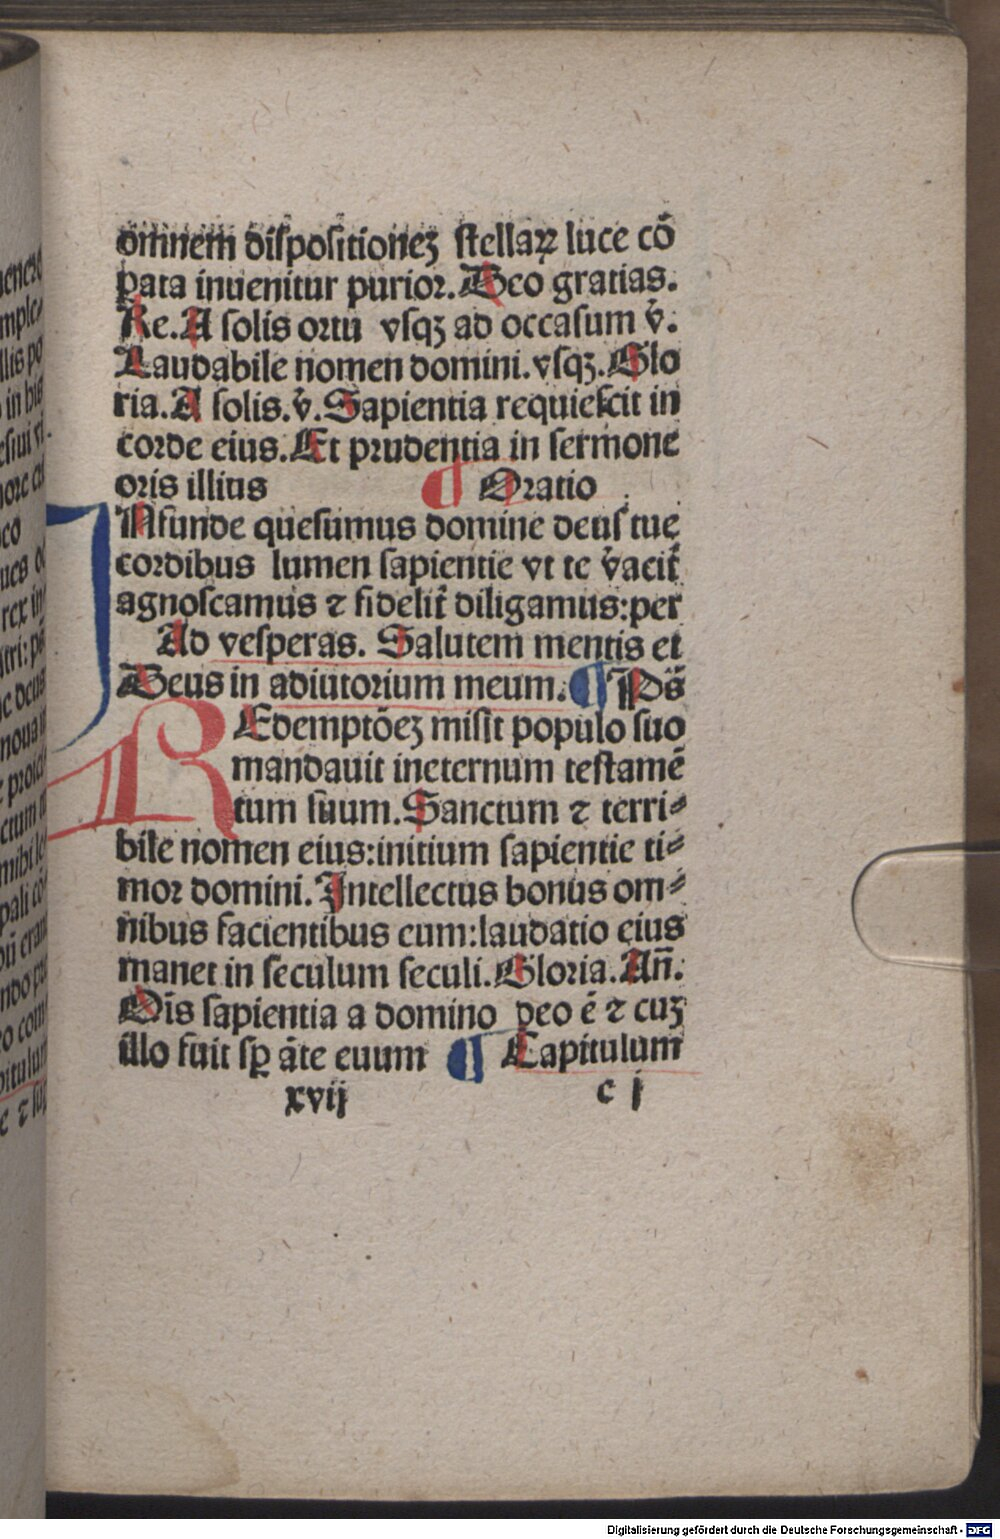 omnem dispositioneʒ stellaꝝ luce cō
pata inuenitur purior. Deo gratias.
Re. A solis ortu vsqʒ ad occasum v̄.
Laudabile nomen domini. vsqʒ. Glo
ria. A solis. v̄. Sapientia requiescit in
corde eius. Et prudentia in sermone
oris illius ¶ Oratio
INfunde quesumus domine deus tue
cordibus lumen sapientie vt te v̄acit̄
agnoscamus ⁊ fidelit̄ diligamus: per
Ad vesperas. Salutem mentis et
Deus in adiutorium meum. ¶ Ps̄
REdemptōeʒ misit populo suo
mandauit ineternum testamē
tum suum. Sanctum ⁊ terri⸗
bile nomen eius: initium sapientie ti⸗
mor domini. Intellectus bonus om⸗
nibus facientibus eum: laudatio eius
manet in seculum seculi. Gloria. An̄.
Oīs sapientia a domino deo ē ⁊ cuʒ
illo fuit sꝑ āte euum ¶ Capitulum
xvij c j
Digitalisierung gefördert durch die Deutsche Forschungsgemeinschaft - DFG